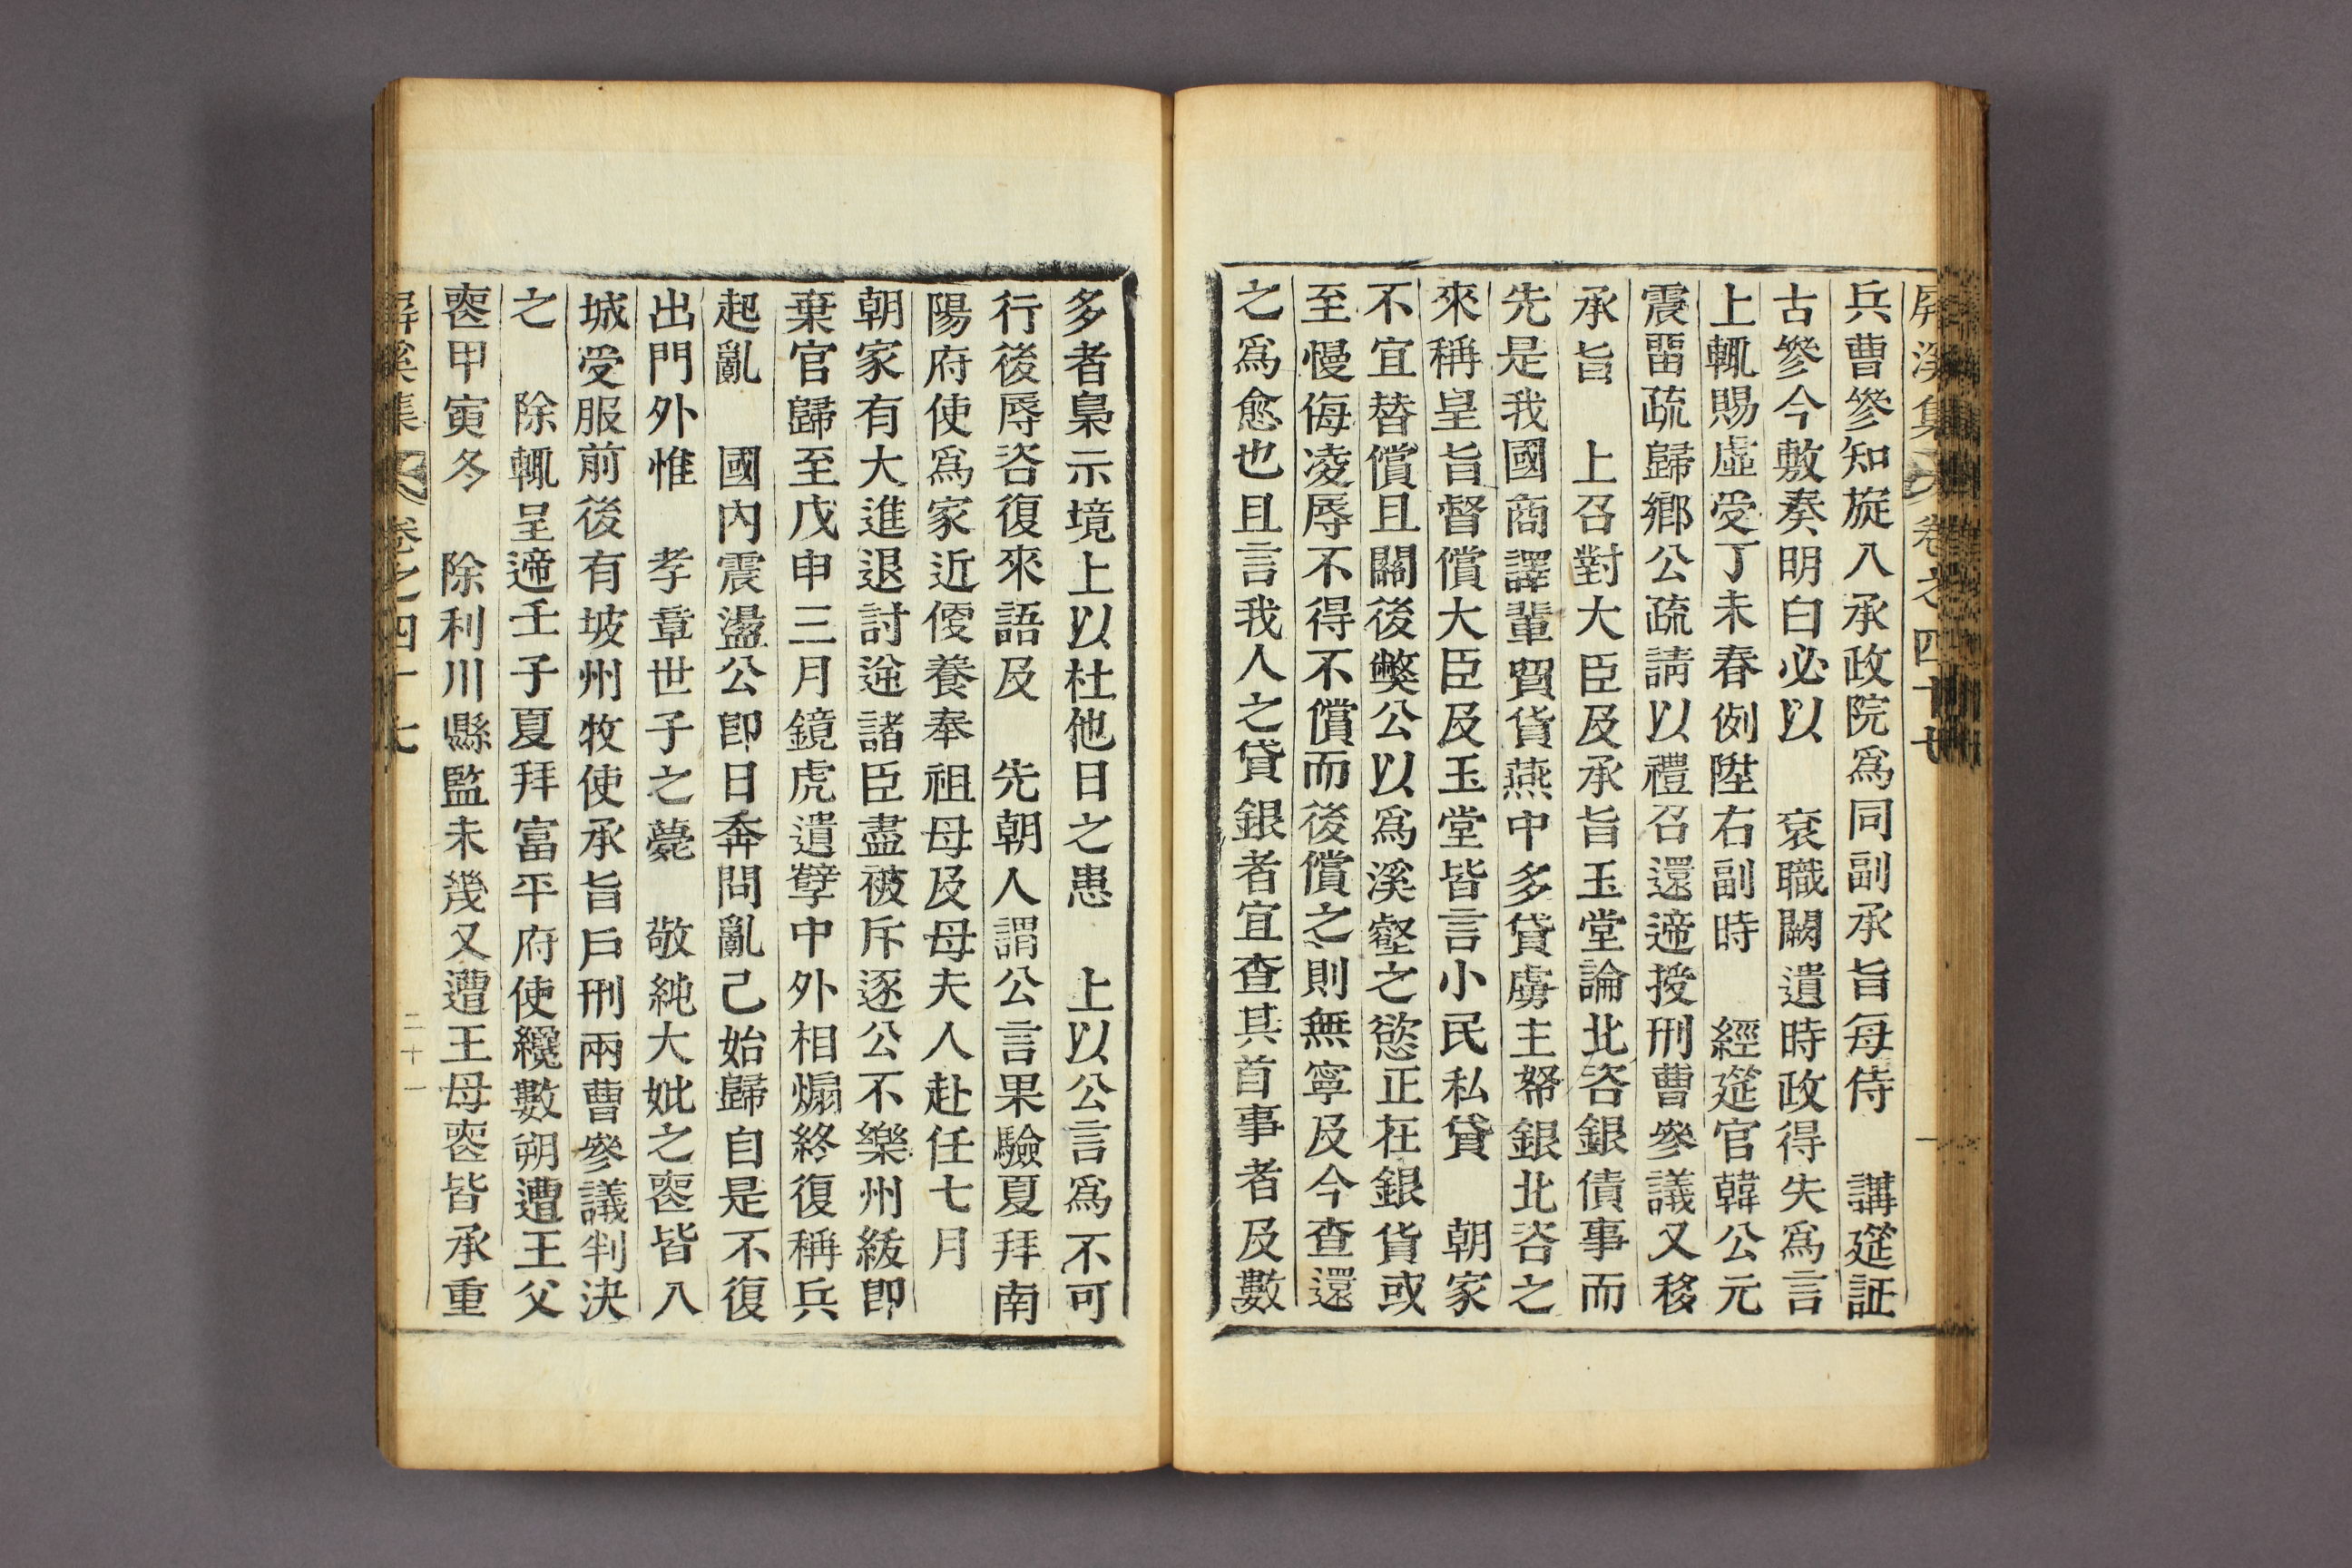 屛溪集 卷之四十七
兵曹參知旋入承政院爲同副承旨每侍 講筵証
古參今敷奏明白必以 袞職闕遺時政得失爲言
上輒賜虛受丁未春例陞右副時 經筵官韓公元
震留疏歸鄕公疏請以禮召還遞授刑曹參議又移
承旨 上召對大臣及承旨玉堂論北咨銀債事而
先是我國商譯輩貿貨燕中多貸虜主帑銀北咨之
來稱皇旨督償大臣及玉堂皆言小民私貸 朝家
不宜替償且關後弊公以爲溪壑之慾正在銀貨或
至慢侮凌辱不得不償而後償之則無寧及今查還
之爲愈也且言我人之貸銀者宜查其首事者及數
多者梟示境上以杜他日之患 上以公言爲不可
行後辱咨復來語及 先朝人謂公言果驗夏拜南
陽府使爲家近便養奉祖母及母夫人赴任七月
朝家有大進退討逆諸臣盡被斥逐公不樂州紱卽
棄官歸至戊申三月鏡虎遺孽中外相煽終復稱兵
起亂 國內震盪公卽日奔問亂已始歸自是不復
出門外惟 孝章世子之薨 敬純大妣之喪皆入
城受服前後有坡州牧使承旨戶刑兩曹參議判決
之 除輒呈遞壬子夏拜富平府使纔數朔遭王父
喪甲寅冬 除利川縣監未幾又遭王母喪皆承重
屛溪集 卷之四十七 二十一